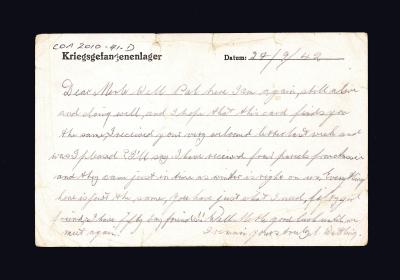 CDA 2010-41-D
Kriegsgefangenenlager
Datum: 24/9/42
Dear Merle Well Pal here I am again, still alive
and doing well, and I hope that this card finds you
the same, I received your very welcomed letter last week and
was I pleased I'll say. I have received four parcels from home
and they came just in time as winter is right on us. Everything
here is just the same, you have just what I need, fifty girl
friends, I have fifty boy friends!! Well M. the good luck until we
meet again! I remain yours truly